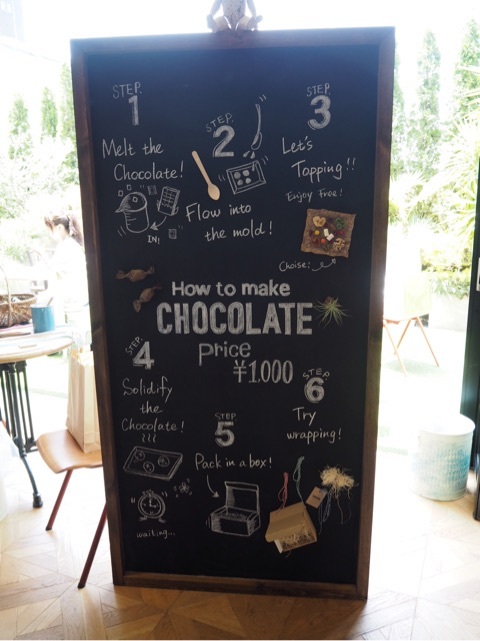 STEP.
1
Melt the
Chocolate!
IN!
STEP.
2
Flow into
the mold!
STEP.
3
Let's
Topping!!
Enjoy Free!
Choise!
How to make
CHOCOLATE
Price
¥1.000
STEP.
4
Solidify
the
Chocolate!
waiting...
STEP.
5
Pack in a box!
STEP.
6
Try
wrapping!